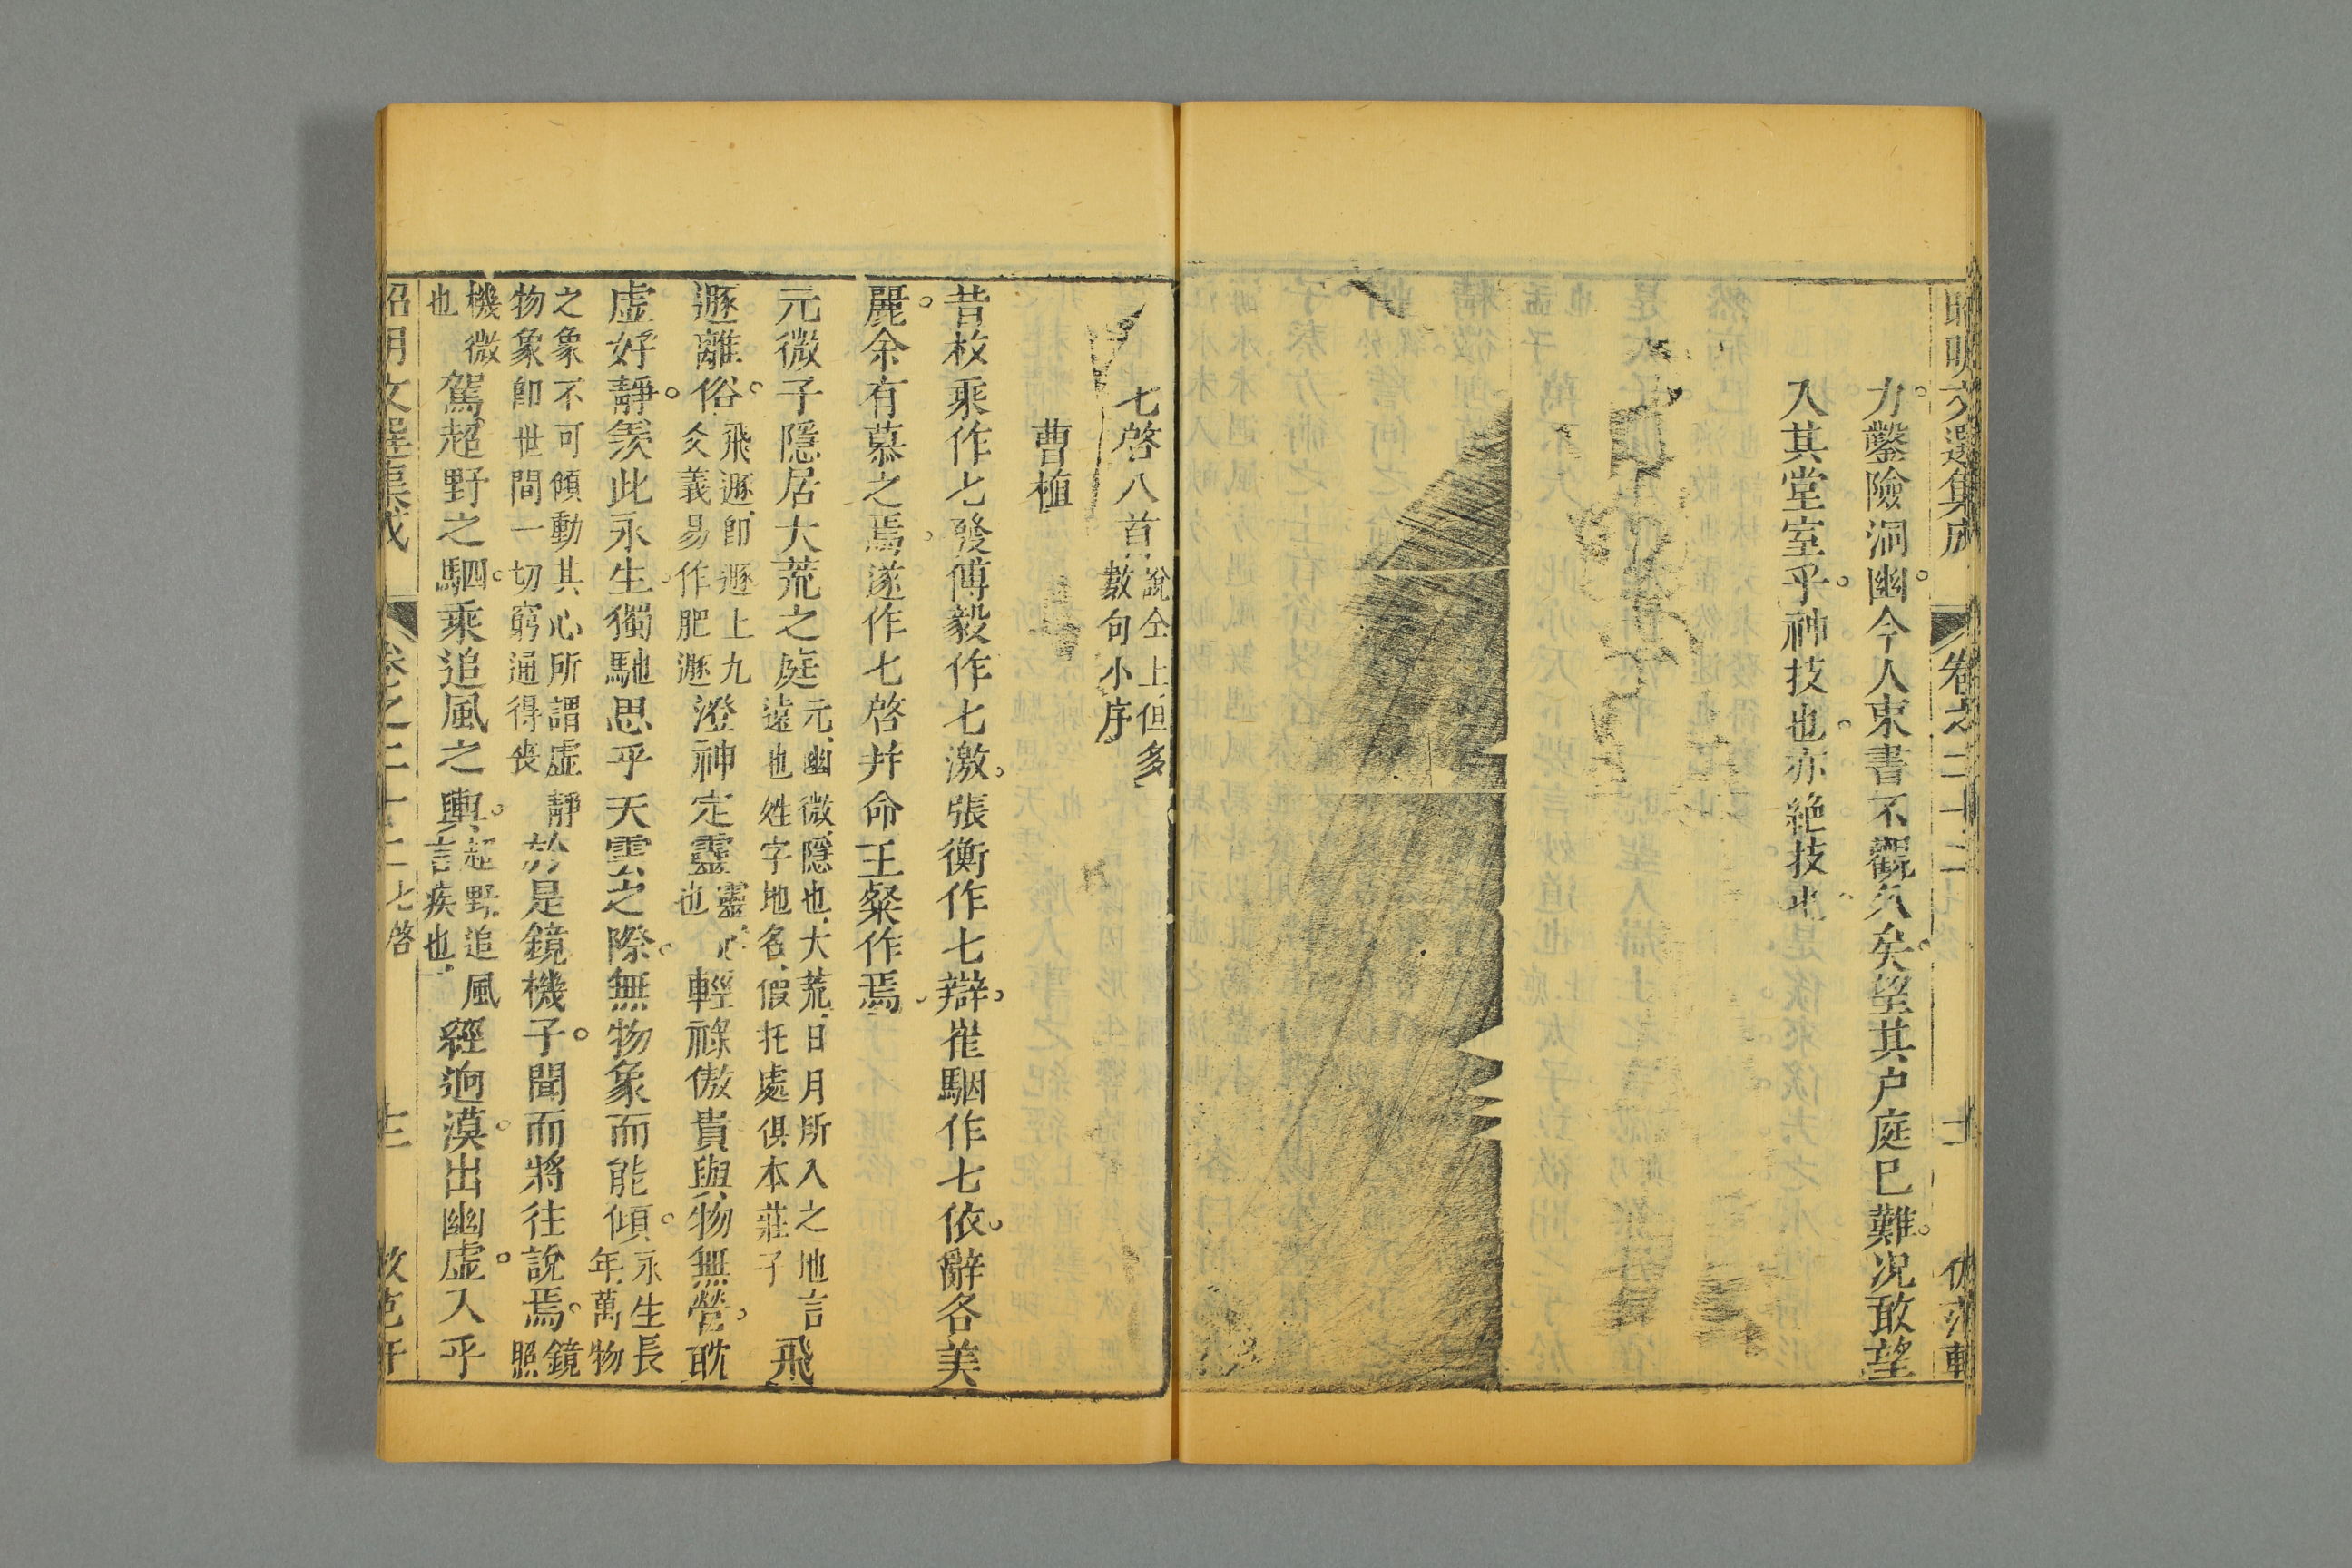 昭明文選集成 卷之二十二 士
力鑿險洞幽。今人束書不觀久矣。望其户庭已難。况敢望
入其堂室乎。神技也。亦絶技也
七啓八首 說仝上但多
數句小序
曹植
昔枚乘作七發傅毅作七激。張衡作七辯。崔駰作七依。辭各美
麗。余有慕之焉。遂作七啓并命王粲作焉
元微子隱居大荒之庭 元、幽微、隱也、大荒、日月所入之地言
遠也姓字地名、假托處俱本莊子 飛
遯離俗。飛遯、卽遯上九
爻義易作肥遯 澄神定靈 靈、心
也 輕祿傲貴與物無營。耽
虛好靜。羨此永生。獨馳思乎天雲之際。無物象而能傾。永生長
年、萬物
之象不可傾動其心所謂虛靜
物象卽世間一切窮通得喪 於是鏡機子。聞而將往說焉。鏡
照
機微
也 駕超野之駟。乘追風之輿。超野、追風
言疾也、 經逈漠。出幽虛。入乎
昭明文選集成 卷之二十二 七啓